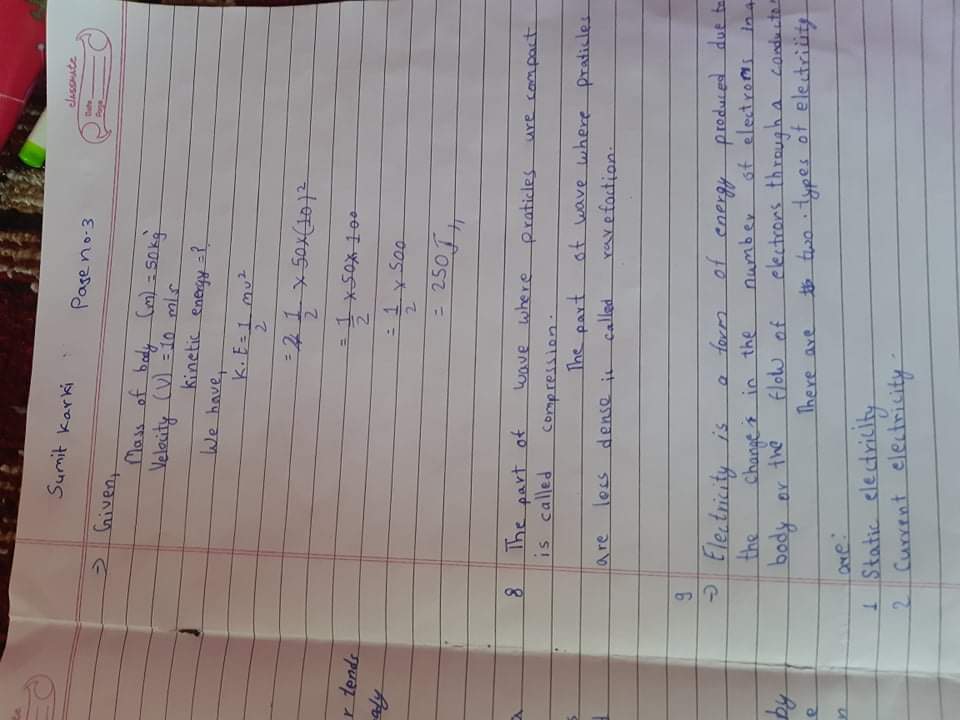 classmate
Date
Page
Sumit Karki : Page no.3
→ Given,
Mass of body (m) = 50kg
Velocity (V) = 10 m/s
kinetic energy = ?
We have,
K.E = 1/2 mv²
= 1/2 x 50x(10)²
= 1/2 x50x 100
= 1/2 x 500
= 250J //
8 The part of wave where praticles are compact
is called compression.
The part of wave where praticles
are loss dense is called rarefaction.
9
→ Electricity is a form of energy produced due to
the change in the number of electrons in a
body or the flow of electrons through a conductor
There are two types of electriity
are:
1 Static electricity
2 Current electricity.
r tends
by